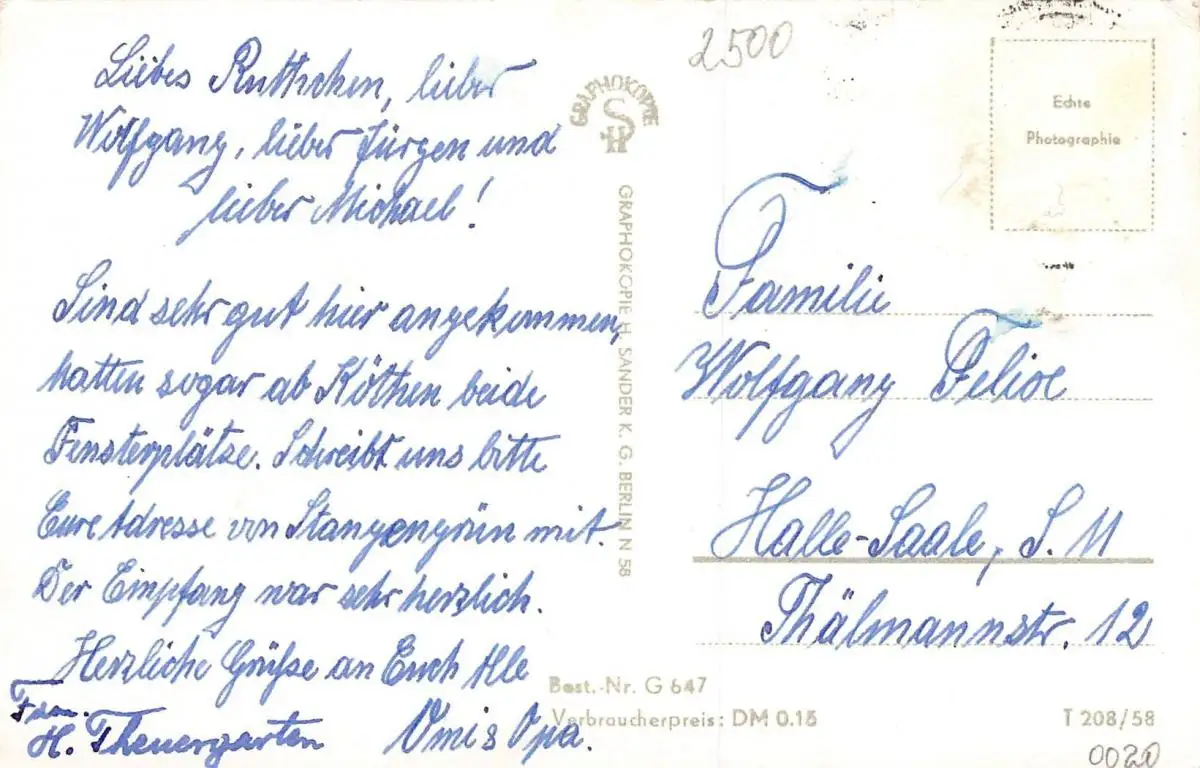 2500
Liebes Ruthchen, lieber
Wolfgang, lieber Jürgen und
lieber Michael!
Sind sehr gut hier angekommen,
hatten sogar ab Köthen beide
Fensterplätze. Schreibt uns bitte
Eure Adresse von Stangengrün mit.
Der Empfang war sehr herzlich.
Herzliche Grüße an Euch Alle
Omi & Opa.
Fam.
H. Theuergarten
GRAPHOKOPIE
HS
GRAPHOKOPIE H. SANDER K. G. BERLIN N 58
Echte
Photographie
Familie
Wolfgang Felix
Halle-Saale, S. 11
Thälmannstr. 12
Best.-Nr. G 647
Verbraucherpreis: DM 0.15
T 208/58
0020